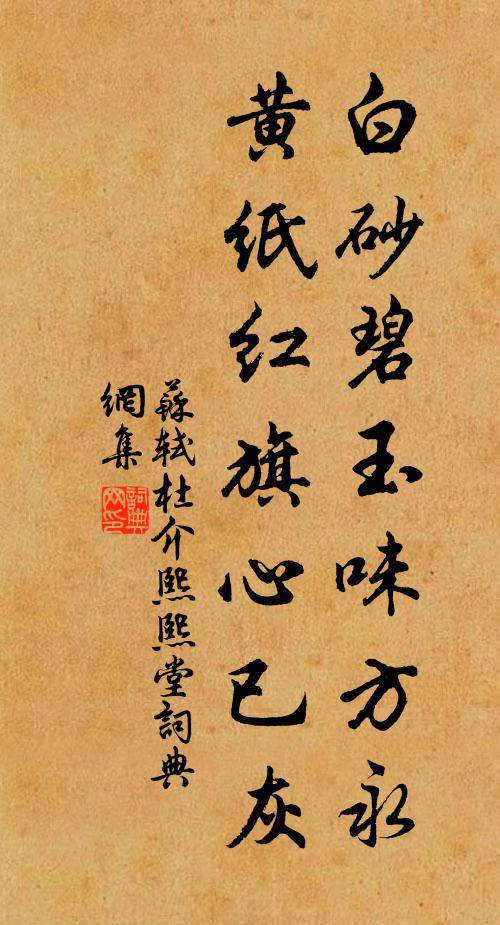 白砂碧玉味方永
黄纸红旗心已灰
蘇軾杜介熙熙堂詞典
網集
詞典
网印